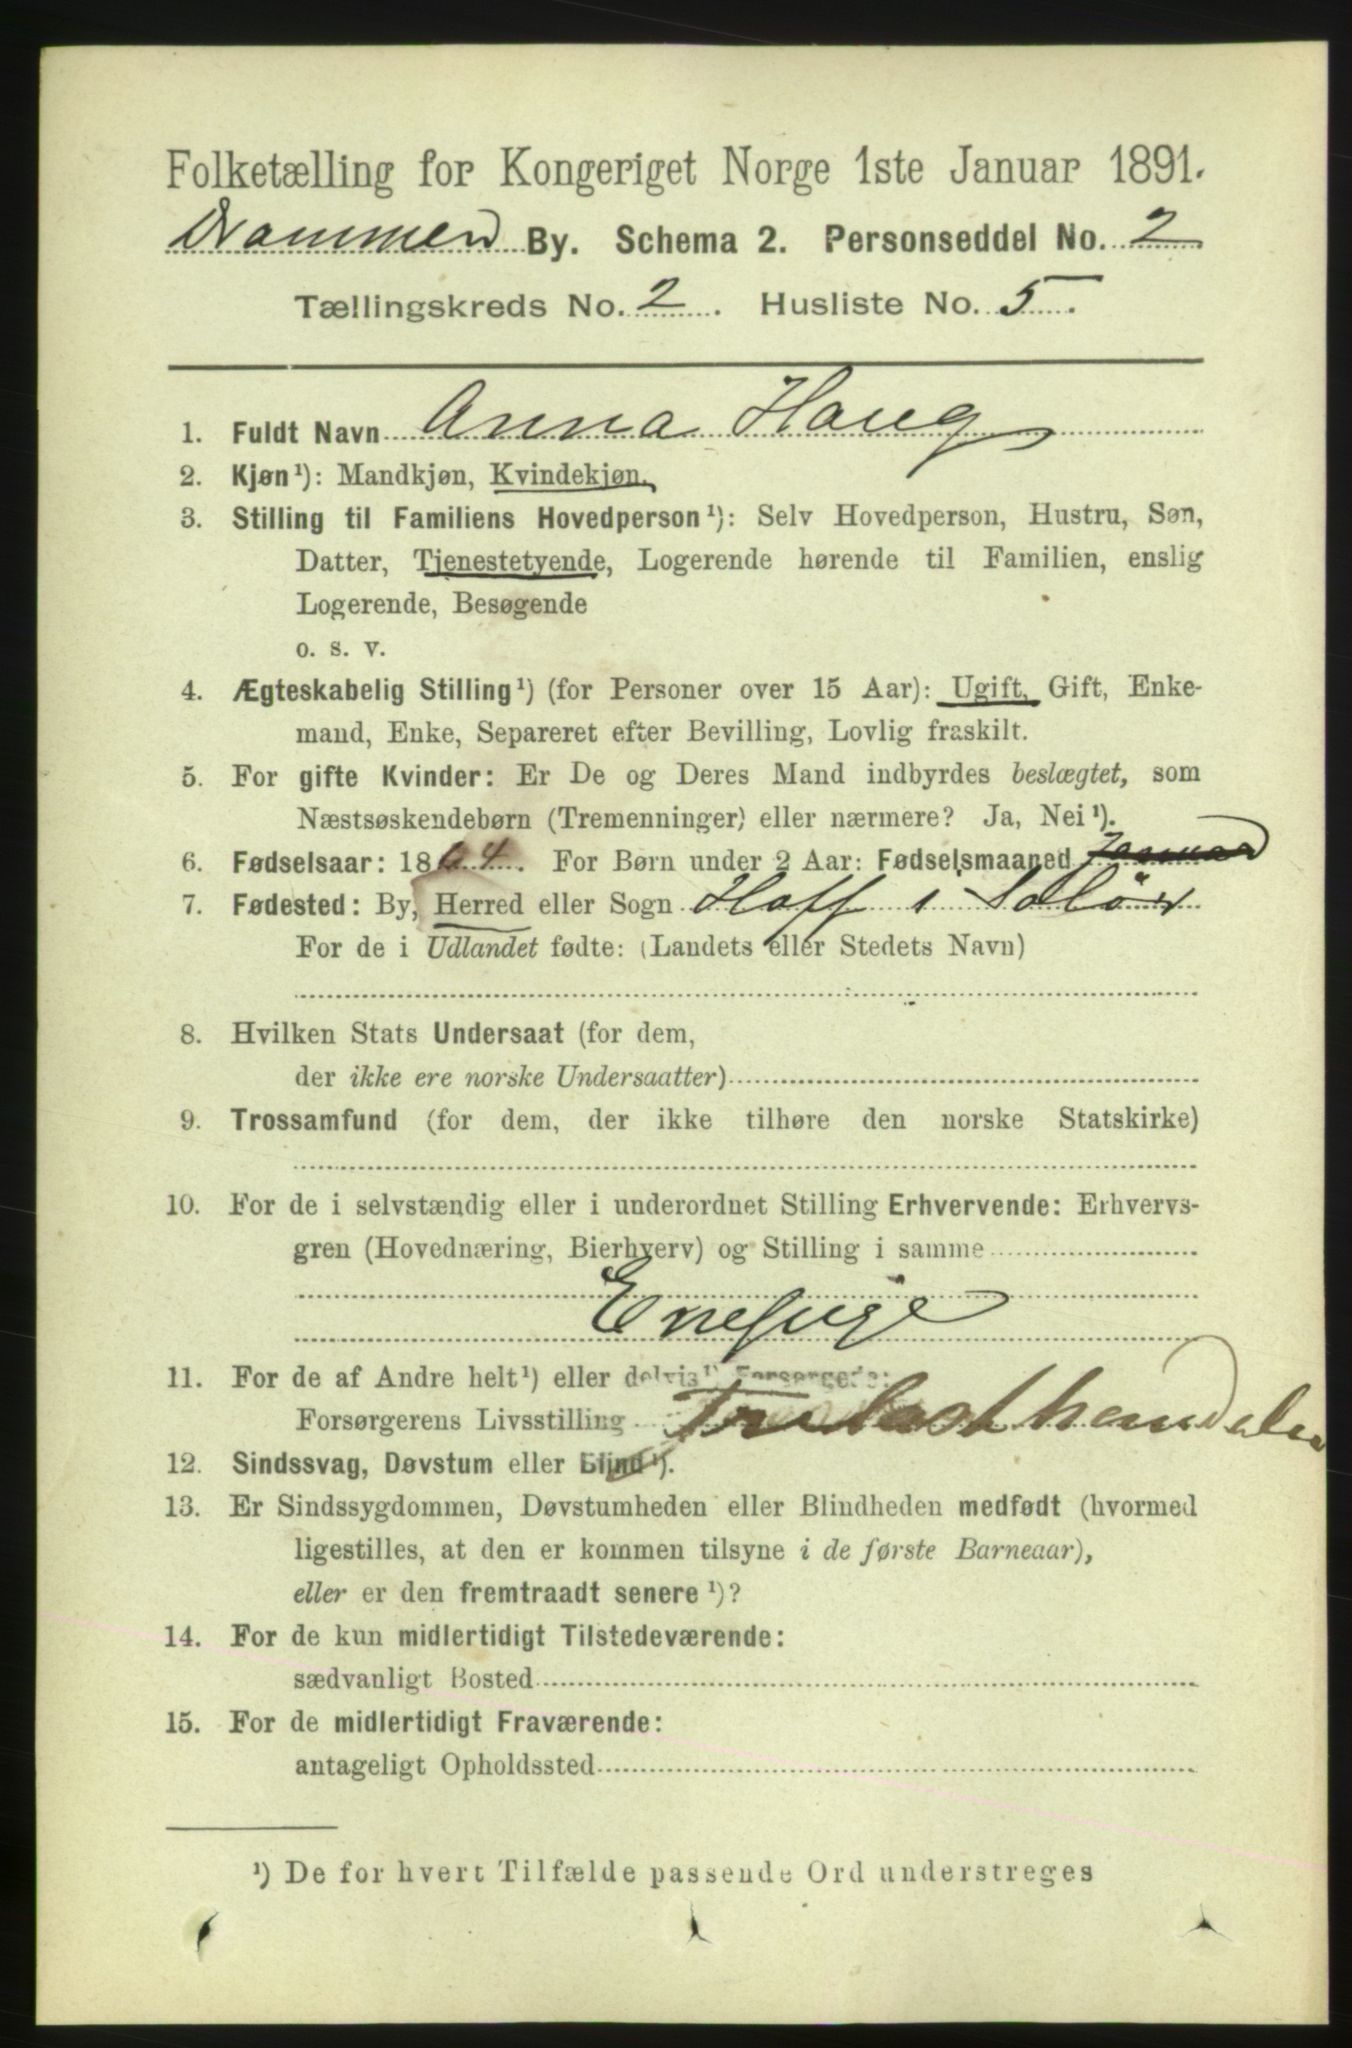 Folketælling for Kongeriget Norge 1ste Januar 1891.
Drammen By. Schema 2. Personseddel No. 2
Tællingskreds No. 2. Husliste No. 5.
1. Fuldt Navn Anna Haug
2. Kjøn¹): Mandkjøn, Kvindekjøn.
3. Stilling til Familiens Hovedperson¹): Selv Hovedperson, Hustru, Søn,
Datter, Tjenestetyende, Logerende hørende til Familien, enslig
Logerende, Besøgende
o. s. v.
4. Ægteskabelig Stilling¹) (for Personer over 15 Aar): Ugift, Gift, Enke-
mand, Enke, Separeret efter Bevilling, Lovlig fraskilt.
5. For gifte Kvinder: Er De og Deres Mand indbyrdes beslægtet, som
Næstsøskendebørn (Tremenninger) eller nærmere? Ja, Nei¹).
6. Fødselsaar: 1864. For Børn under 2 Aar: Fødselsmaaned Januar
7. Fødested: By, Herred eller Sogn Hoff i Solör
For de i Udlandet fødte: (Landets eller Stedets Navn)
8. Hvilken Stats Undersaat (for dem,
der ikke ere norske Undersaatter)
9. Trossamfund (for dem, der ikke tilhøre den norske Statskirke)
10. For de i selvstændig eller i underordnet Stilling Erhvervende: Erhvervs-
gren (Hovednæring, Bierhverv) og Stilling i samme
Enepige
11. For de af Andre helt¹) eller delvis¹) Forsørgede:
Forsørgerens Livsstilling Trælasthandler
12. Sindssvag, Døvstum eller Blind¹).
13. Er Sindssygdommen, Døvstumheden eller Blindheden medfødt (hvormed
ligestilles, at den er kommen tilsyne i de første Barneaar),
eller er den fremtraadt senere¹)?
14. For de kun midlertidigt Tilstedeværende:
sædvanligt Bosted
15. For de midlertidigt Fraværende:
antageligt Opholdssted
¹) De for hvert Tilfælde passende Ord understreges